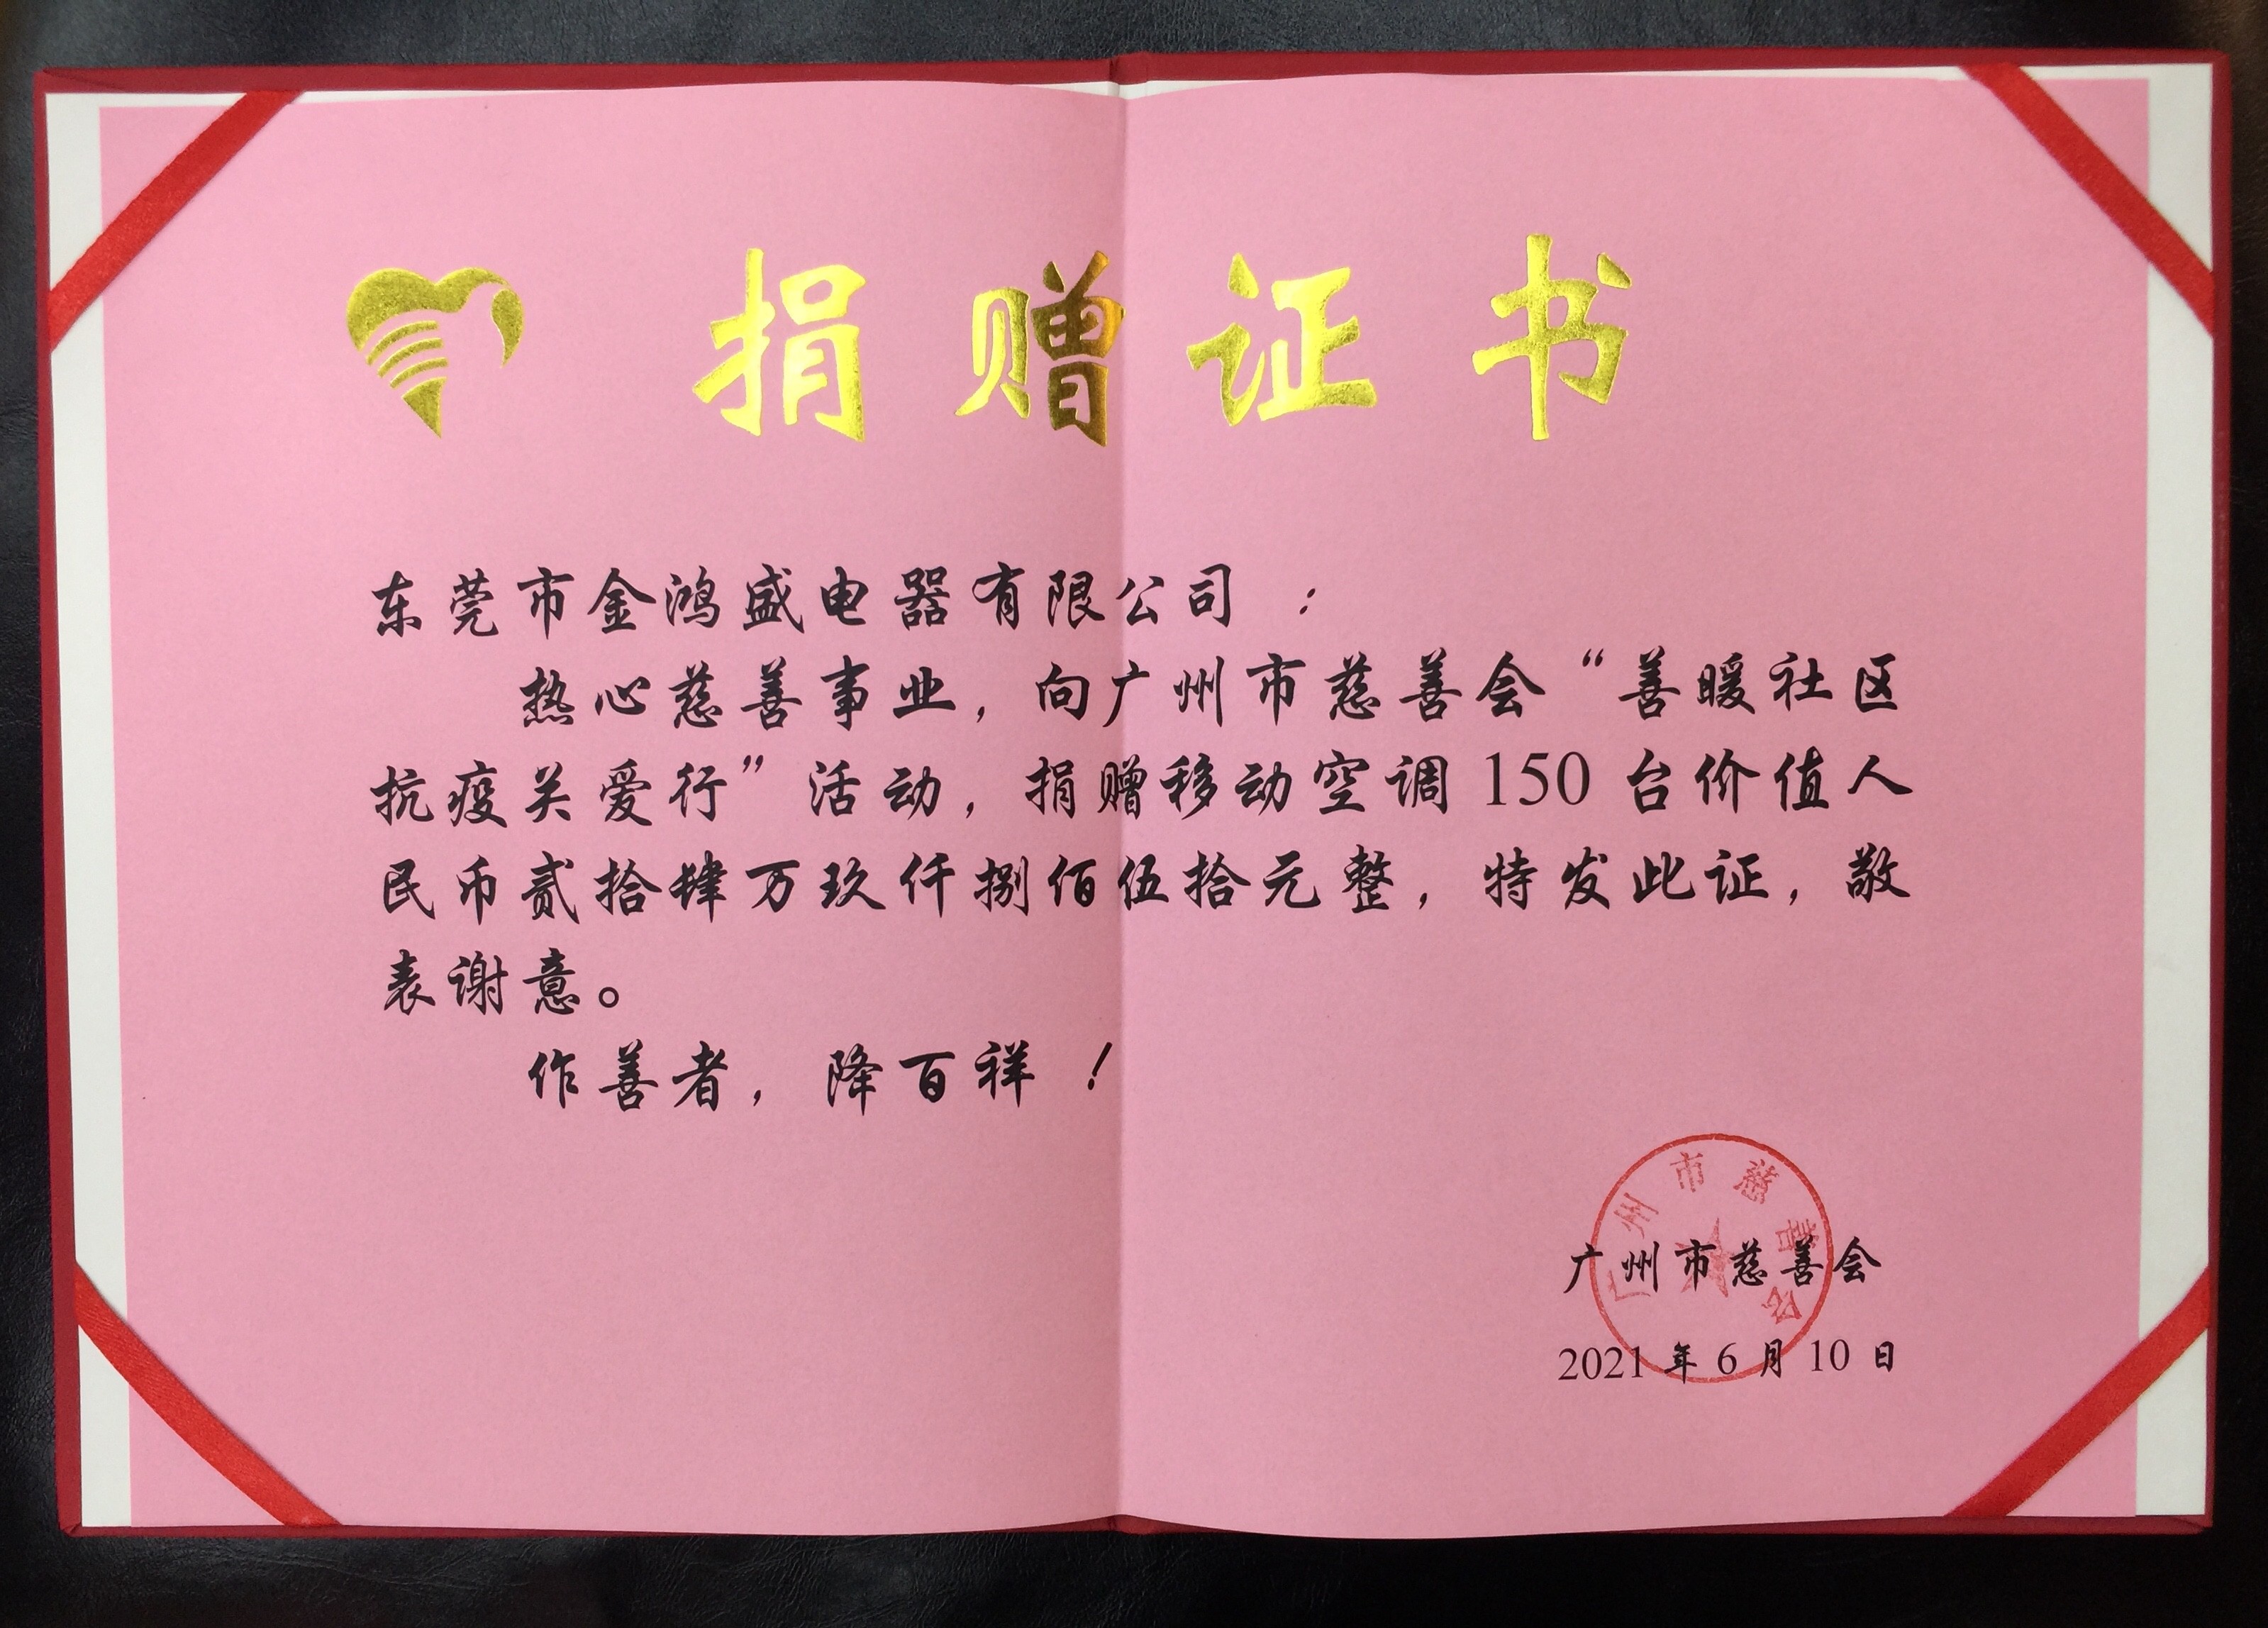 捐赠证书
东莞市金鸿盛电器有限公司：
热心慈善事业，向广州市慈善会“善暖社区
抗疫关爱行”活动，捐赠移动空调150台价值人
民币贰拾肆万玖仟捌佰伍拾元整，特发此证，敬
表谢意。
作善者，降百祥！
广州市慈善会
广州市慈善会
2021年6月10日